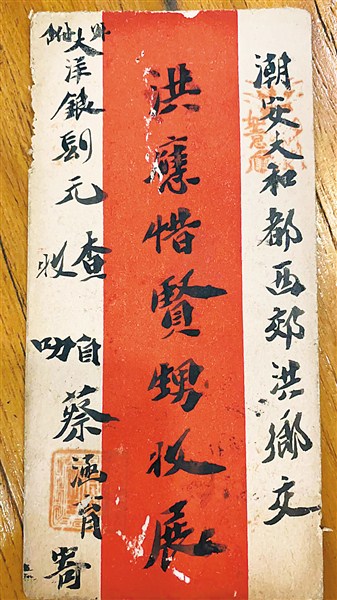 潮安大和都西郊洪鄉交
洪應惜賢甥收展
外附大洋銀元查收
自叻蔡涵育寄